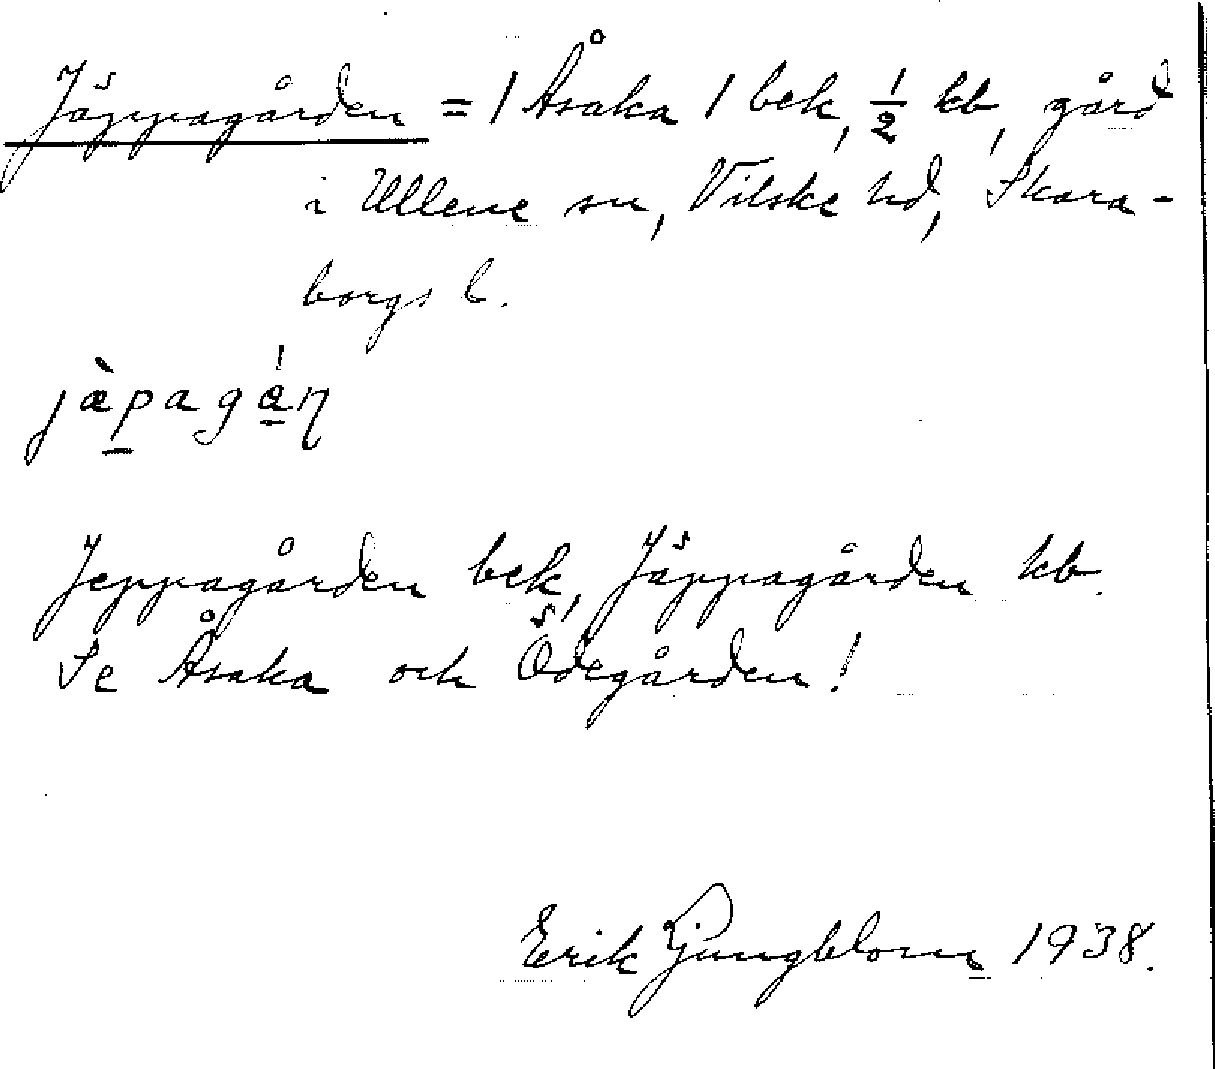 Jäppagården = / Åsaka / bek, 1/2 kb, gård
i Ullene sn, Vilske hd, Skara-
borgs l.
jæ̀pagán
Jeppagården bek, Jäppagården kb.
Se Åsaka och Ödegården!
Erik Ljungblom 1938.